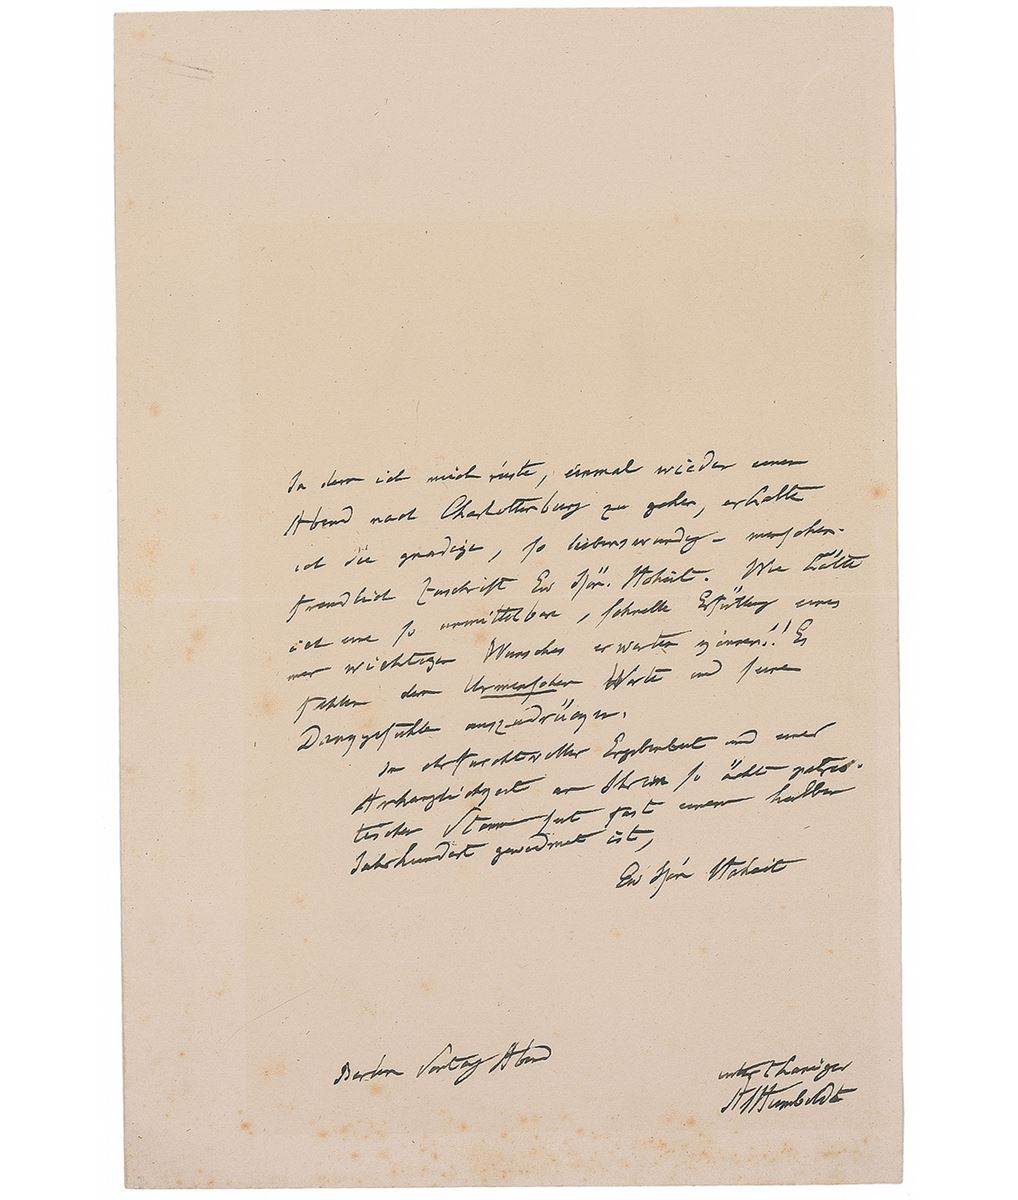 In dem ich mich rüste, einmal wieder einen
Abend nach Charlottenburg zu gehen, erhalte
ich die gnädige, so liebenswürdig-menschen-
freundlich Zuschrift Ew Kön. Hoheit. Wie hätte
ich eine so unmittelbare, schnelle Erfüllung eines
mir wichtigen Wunsches erwarten können!! Es
fehlen dem Urmenschen Worte um seine
Dankgefühle auszudrücken.
In ehrfurchtvoller Ergebenheit und einer
Anhänglichkeit die Ihrem so ächt patrio-
tischen Stamm seit fast einem halben
Jahrhundert gewidmet ist,
Ew Kön Hoheit
Berlin Sontag Abend
unterthäniger
AvHumboldt